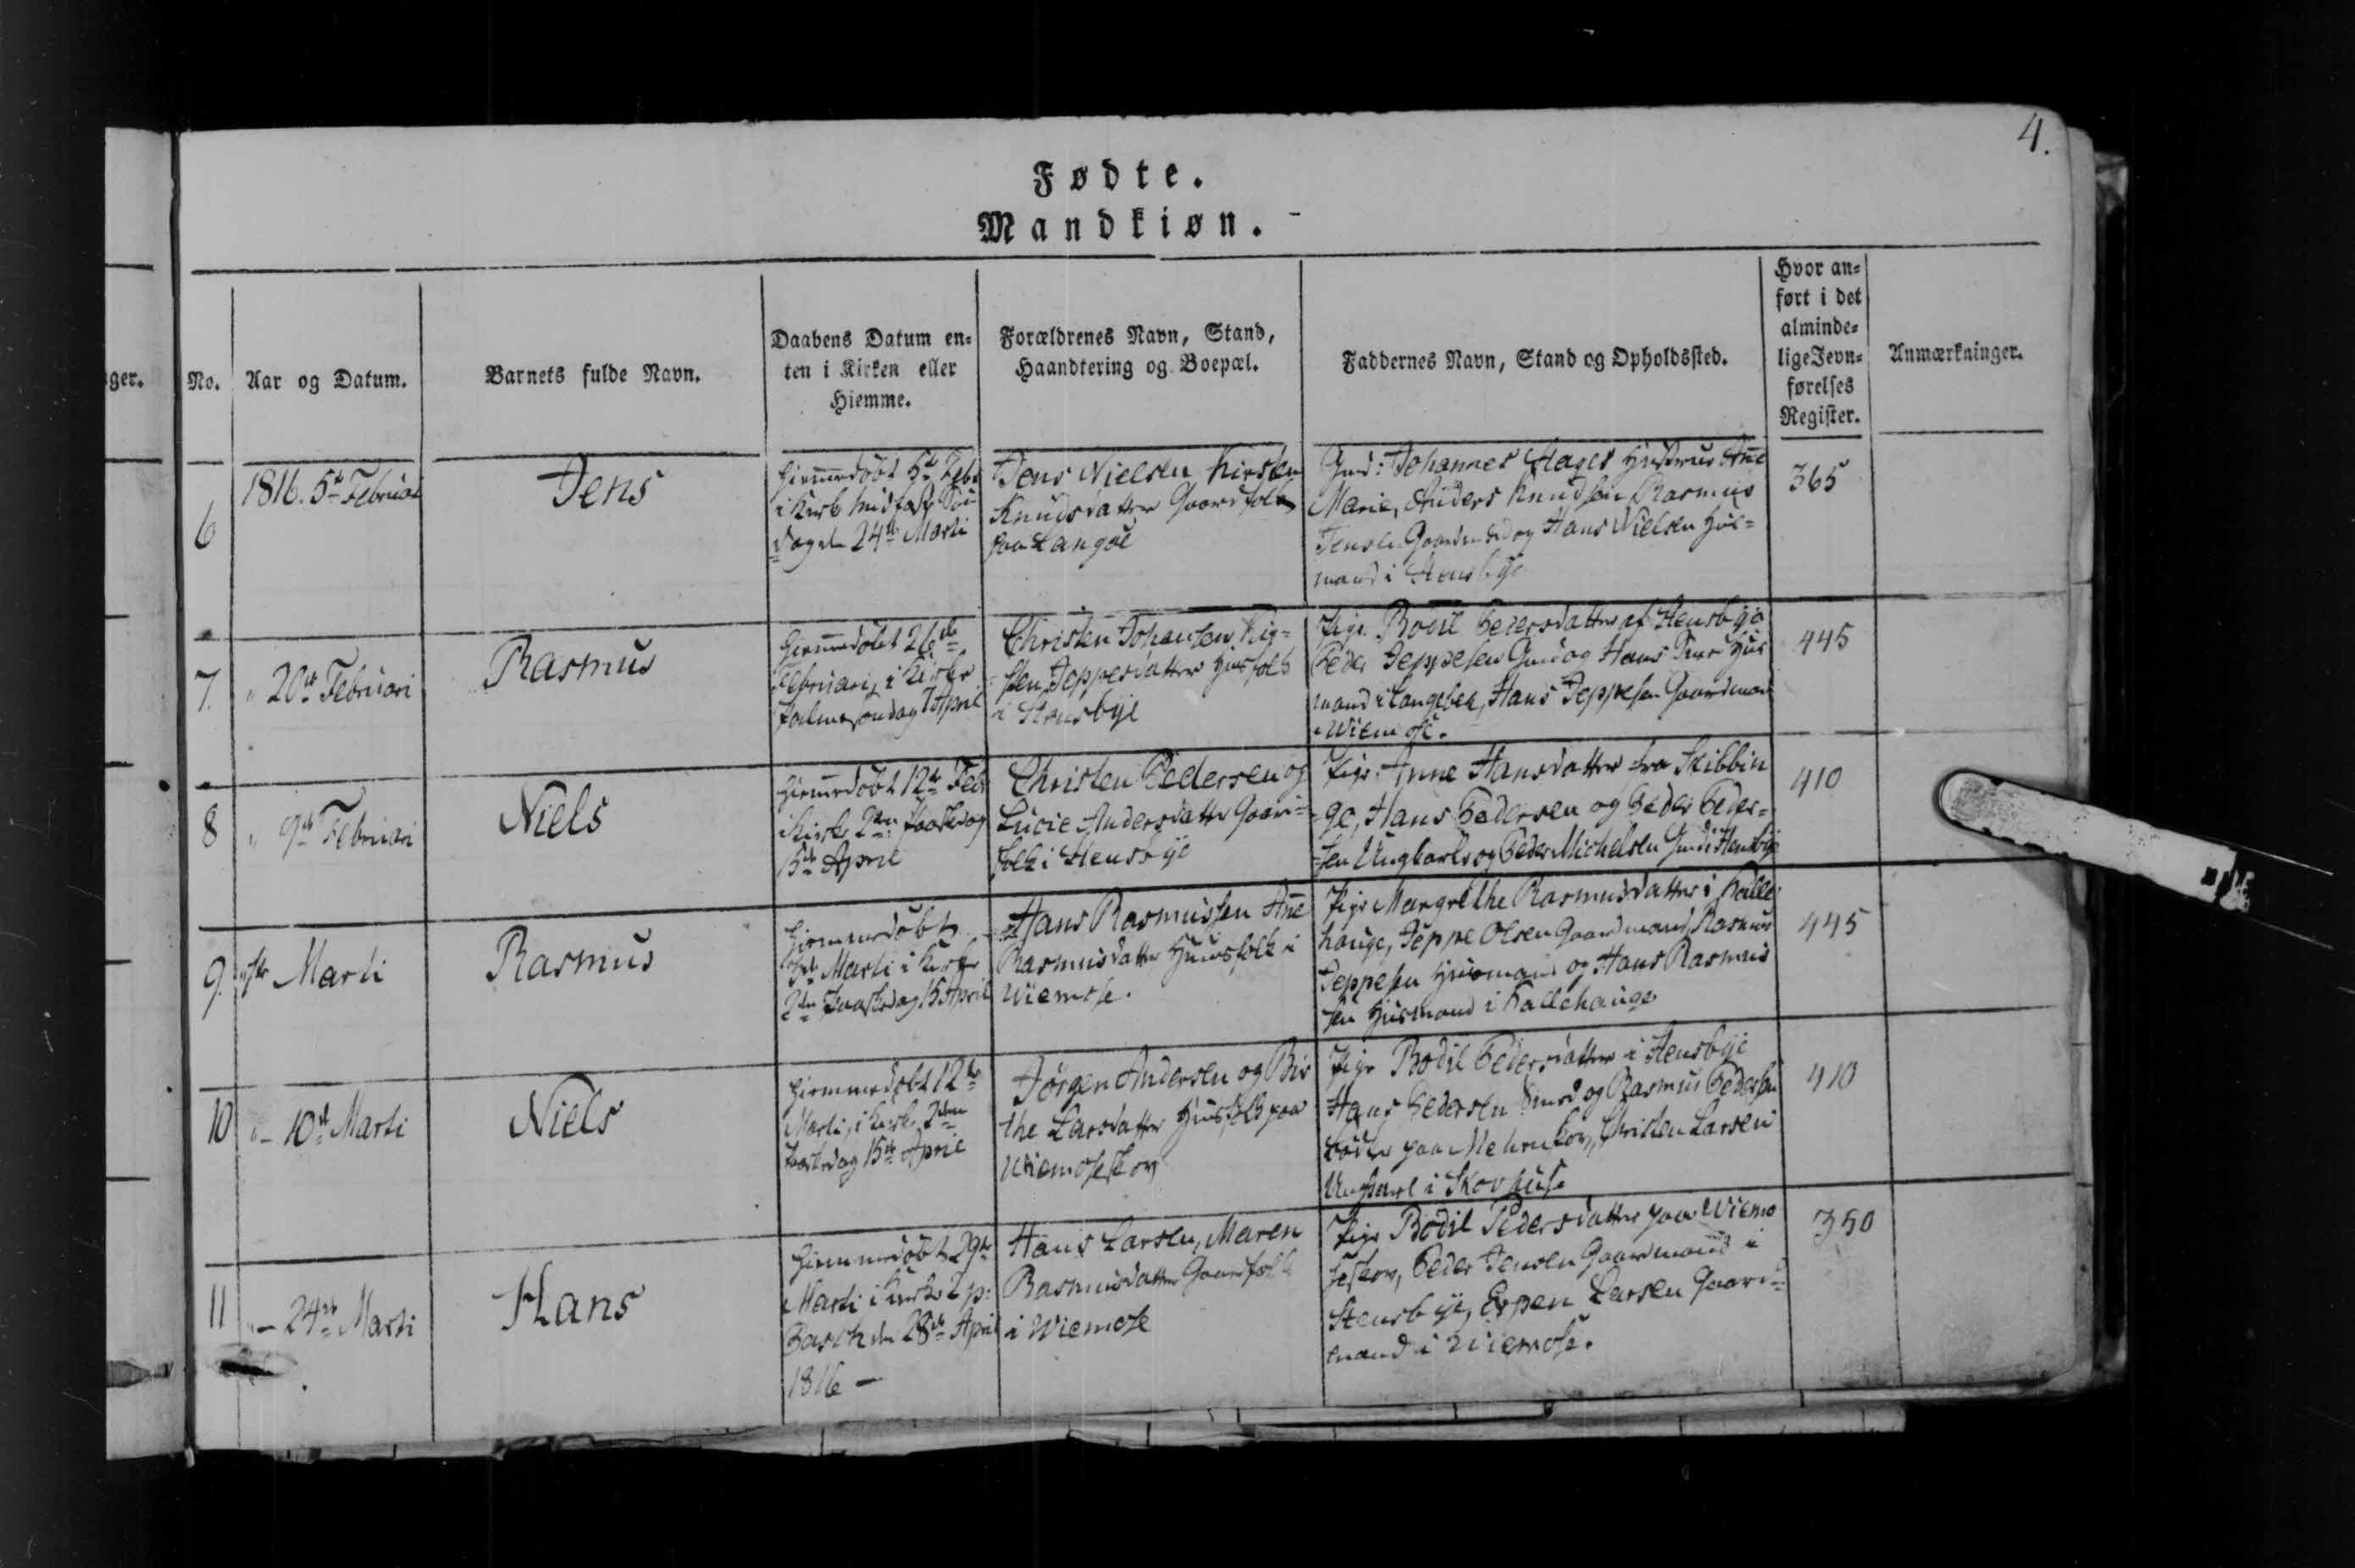 4.
Fødte.
Mandkiøn.
ger.
No.
Aar og Datum.
Barnets fulde Navn.
Daabens Datum en-
ten i Kirken eller
Hiemme.
Forældrenes Navn, Stand,
Haandtering og Boepæl.
Faddernes Navn, Stand og Opholdssted.
Hvor an-
ført i det
alminde-
lige Jevn-
førelses
Register.
Anmærkninger.
6
1816. 5te Februari
Jens
Hiemmedøbt 5te Febr
i Kirk Midfaste Søn-
dag den 24de Marti
Jens Nielsen Kirsten
Knudsdatter Gaardfolk
paa Langøe
Gmd: Johannes Hages Hustrue Ane
Marie, Anders Knudsen Rasmus
Jensen Gaardmænd og Hans Nielsen Huus-
mand i Stensbye
365
7.
" 20de Februari
Rasmus
Hiemmedøbt 26de
Februari, i Kirke
Palmesøndag 7 April
Christen Johansen, Kir-
sten Jeppesdatter Huusfolk
i Stensbye
Pige Bodil Pedersdatter af Stensbye
Peder Jeppesen Gmd og Hans Huus
mand i Langebek, Hans Jeppesen Gaardmand
i Wiemose.
445
8
" 9de Februari
Niels
Hiemmedøbt 12te Febr
i Kirke 2den Paaskedag
15de April
Christen Pedersen og
Lucie Andersdatter Gaard-
folk i Stensbye
Pige Anne Hansdatter fra Skibbin
ge, Hans Pedersen og Peder Peder-
sen Ungkarle og Peder Michelsen Gmd i Stensbye
410
9.
Marti
Rasmus
Hiemmedøbt
Marti i Kirke
2den Paaskedag 15 April
Hans Rasmussen Ane
Rasmusdatter Huusfolk i
Wiemose.
Pige Margrethe Rasmusdatter i Kalle
hauge, Jeppe Olsen Gaardmand, Rasmus
Jeppesen Huusmand og Hans Rasmus
sen Huusmand i Kallehauge
445
10
" - 10de Marti
Niels
Hiemmedøbt 12te
Marti, i Kirke 2den
Paaskedag 15de April
Jørgen Andersen og Bir
the Larsdatter Huusfolk paa
Wiemoseskov
Pige Bodil Pedersdatter i Stensbye
Hans Pedersen Smed og Rasmus Pedersen
paa Mehrnskov, Christen Larsen
Ungkarl i Skovhuse
410
11
" - 24de Marti
Hans
Hiemmedøbt 29de
Marti i Kirke 1 p:
Pasch den 28de April
1816 -
Hans Larsen, Maren
Rasmusdatter Gaardfolk
i Wiemose
Pige Bodil Pedersdatter paa Wiemo
seskov, Peder Jensen Gaardmand i
Stensbye, Espen Larsen Gaard-
mand i Wiemose.
350